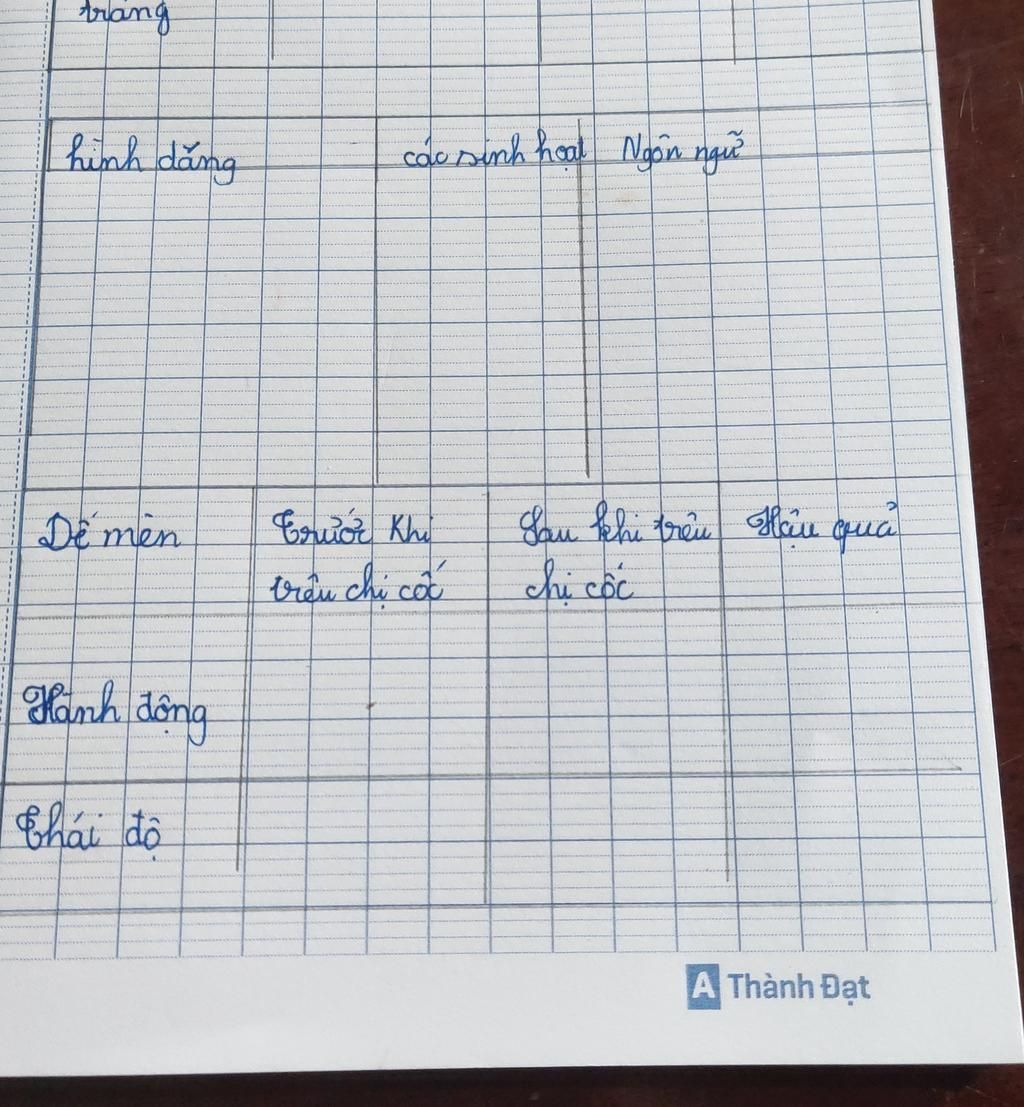 trang
hình dáng các sinh hoạt Ngôn ngữ
Dế mèn Trước Khi Sau khi trêu Hậu quả
trêu chị cốc chị cốc
Hành động
Thái độ
A Thành Đạt